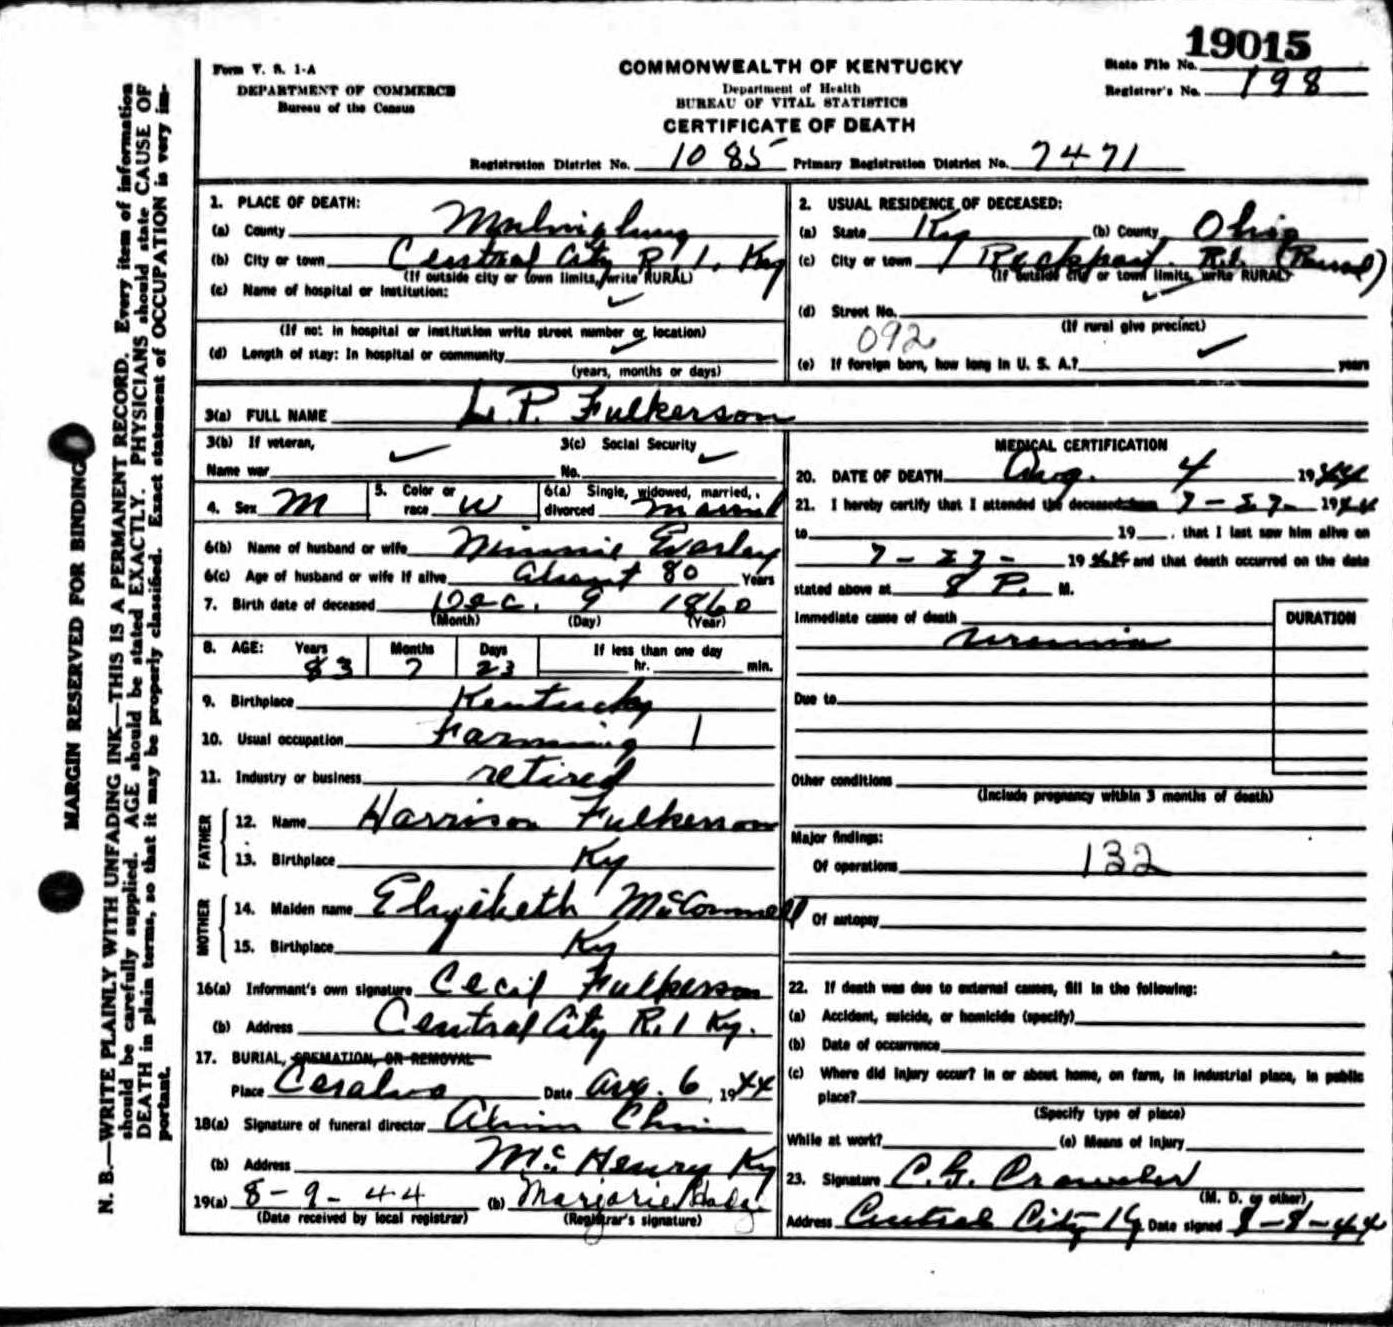 19015
Form V. S. 1-A
DEPARTMENT OF COMMERCE
Bureau of the Census
COMMONWEALTH OF KENTUCKY
Department of Health
BUREAU OF VITAL STATISTICS
CERTIFICATE OF DEATH
State File No.
Registrar's No. 198
Registration District No. 1085 Primary Registration District No. 7471
MARGIN RESERVED FOR BINDING
N. B.—WRITE PLAINLY WITH UNFADING INK—THIS IS A PERMANENT RECORD. Every item of information
should be carefully supplied. AGE should be stated EXACTLY. PHYSICIANS should state CAUSE OF
DEATH in plain terms, so that it may be properly classified. Exact statement of OCCUPATION is very im-
portant.
1. PLACE OF DEATH:
(a) County
(b) City or town Central City R 1, Ky
(If outside city or town limits, write RURAL)
(c) Name of hospital or institution:
(If not in hospital or institution write street number or location)
(d) Length of stay: In hospital or community
(years, months or days)
2. USUAL RESIDENCE OF DECEASED:
(a) State Ky (b) County Ohio
(c) City or town Rockport R.1. (Rural)
(If outside city or town limits, write RURAL)
(d) Street No.
(If rural give precinct)
092
(e) If foreign born, how long in U. S. A.? years
3(a) FULL NAME L. P. Fulkerson
3(b) If veteran,
Name war
3(c) Social Security
No.
4. Sex M
5. Color or
race W
6(a) Single, widowed, married,
divorced married
6(b) Name of husband or wife Minnie Everley
6(c) Age of husband or wife if alive about 80 Years
7. Birth date of deceased Dec. 9 1860
(Month) (Day) (Year)
8. AGE: Years Months Days If less than one day
83 7 23 hr. min.
9. Birthplace Kentucky
10. Usual occupation Farming 1
11. Industry or business retired
FATHER
12. Name Harrison Fulkerson
13. Birthplace Ky
MOTHER
14. Maiden name Elizabeth McConnell
15. Birthplace Ky
16(a) Informant's own signature Cecil Fulkerson
(b) Address Central City R.1 Ky.
17. BURIAL, CREMATION, OR REMOVAL
Place Ceralvo Date Aug. 6, 1944
18(a) Signature of funeral director
(b) Address McHenry Ky
19(a) 8-9-44 (b) Marjorie
(Date received by local registrar) (Registrar's signature)
MEDICAL CERTIFICATION
20. DATE OF DEATH Aug. 4 1944
21. I hereby certify that I attended the deceased from 7-27- 1944
to 19 , that I last saw him alive on
7-27- 1944 and that death occurred on the date
stated above at 8 P. M.
Immediate cause of death DURATION
uremia
Due to
Other conditions
(Include pregnancy within 3 months of death)
Major findings:
Of operations 132
Of autopsy
22. If death was due to external causes, fill in the following:
(a) Accident, suicide, or homicide (specify)
(b) Date of occurrence
(c) Where did injury occur? In or about home, on farm, in industrial place, in public
place?
(Specify type of place)
While at work? (e) Means of injury
23. Signature C. G.
(M. D. or other)
Address Central City Ky Date signed 8-8-44